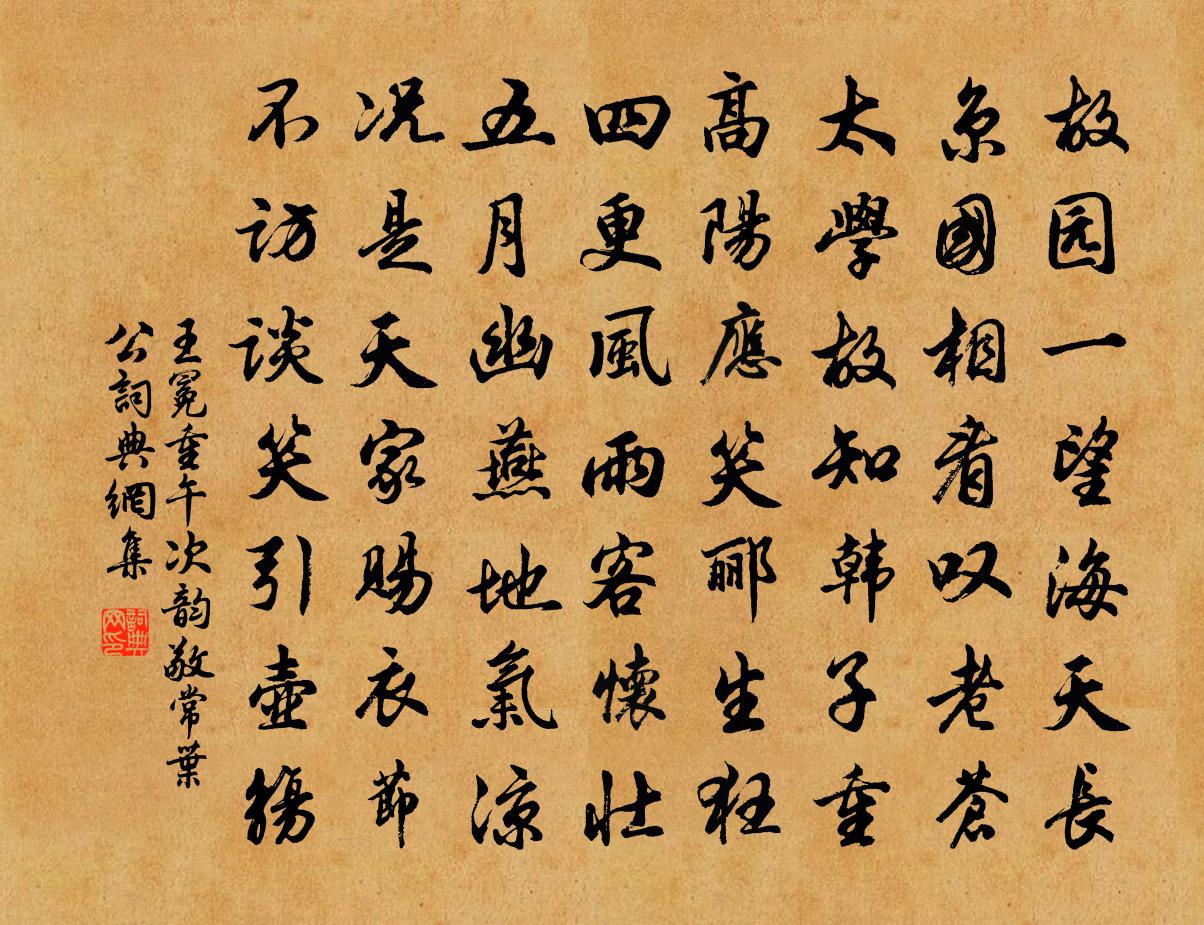 故园一望海天長
京國相看叹老蒼
太學故知韩子重
高陽應笑郦生狂
四更風雨客懷壮
五月幽燕地氣凉
况是天家賜衣節
不訪談笑引壺觴
王冕重午次韵敬常葉
公詞典網集
詞典网印